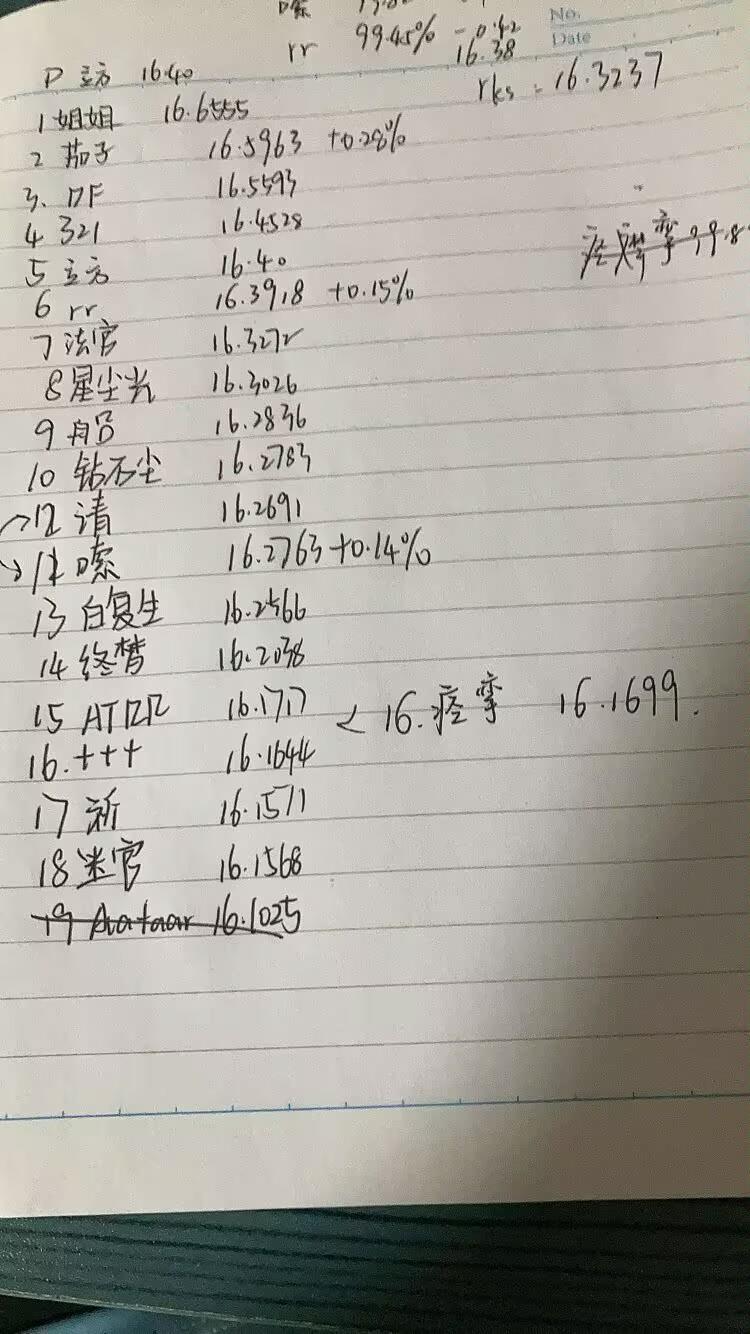 嗦
rr 99.45% -0.42
16.38
No.
Date
P 立方 16.40
rks = 16.3237
1 姐姐 16.6555
2 茄子 16.5963 +0.28%
3. DF 16.5593
4 321 16.4528
痉挛 99.8
5 立方 16.40
6 rr 16.3918 +0.15%
7 法官 16.3272
8 星尘光 16.3026
9 船 16.2836
10 钻石尘 16.2783
→12 请 16.2691
→11 嗦 16.2763 +0.14%
13 白复生 16.2566
14 终梦 16.2038
15 ATRR 16.1717 < 16. 痉挛 16.1699.
16. +++ 16.1644
17 新 16.1571
18 迷宫 16.1568
19 Avataar 16.1025